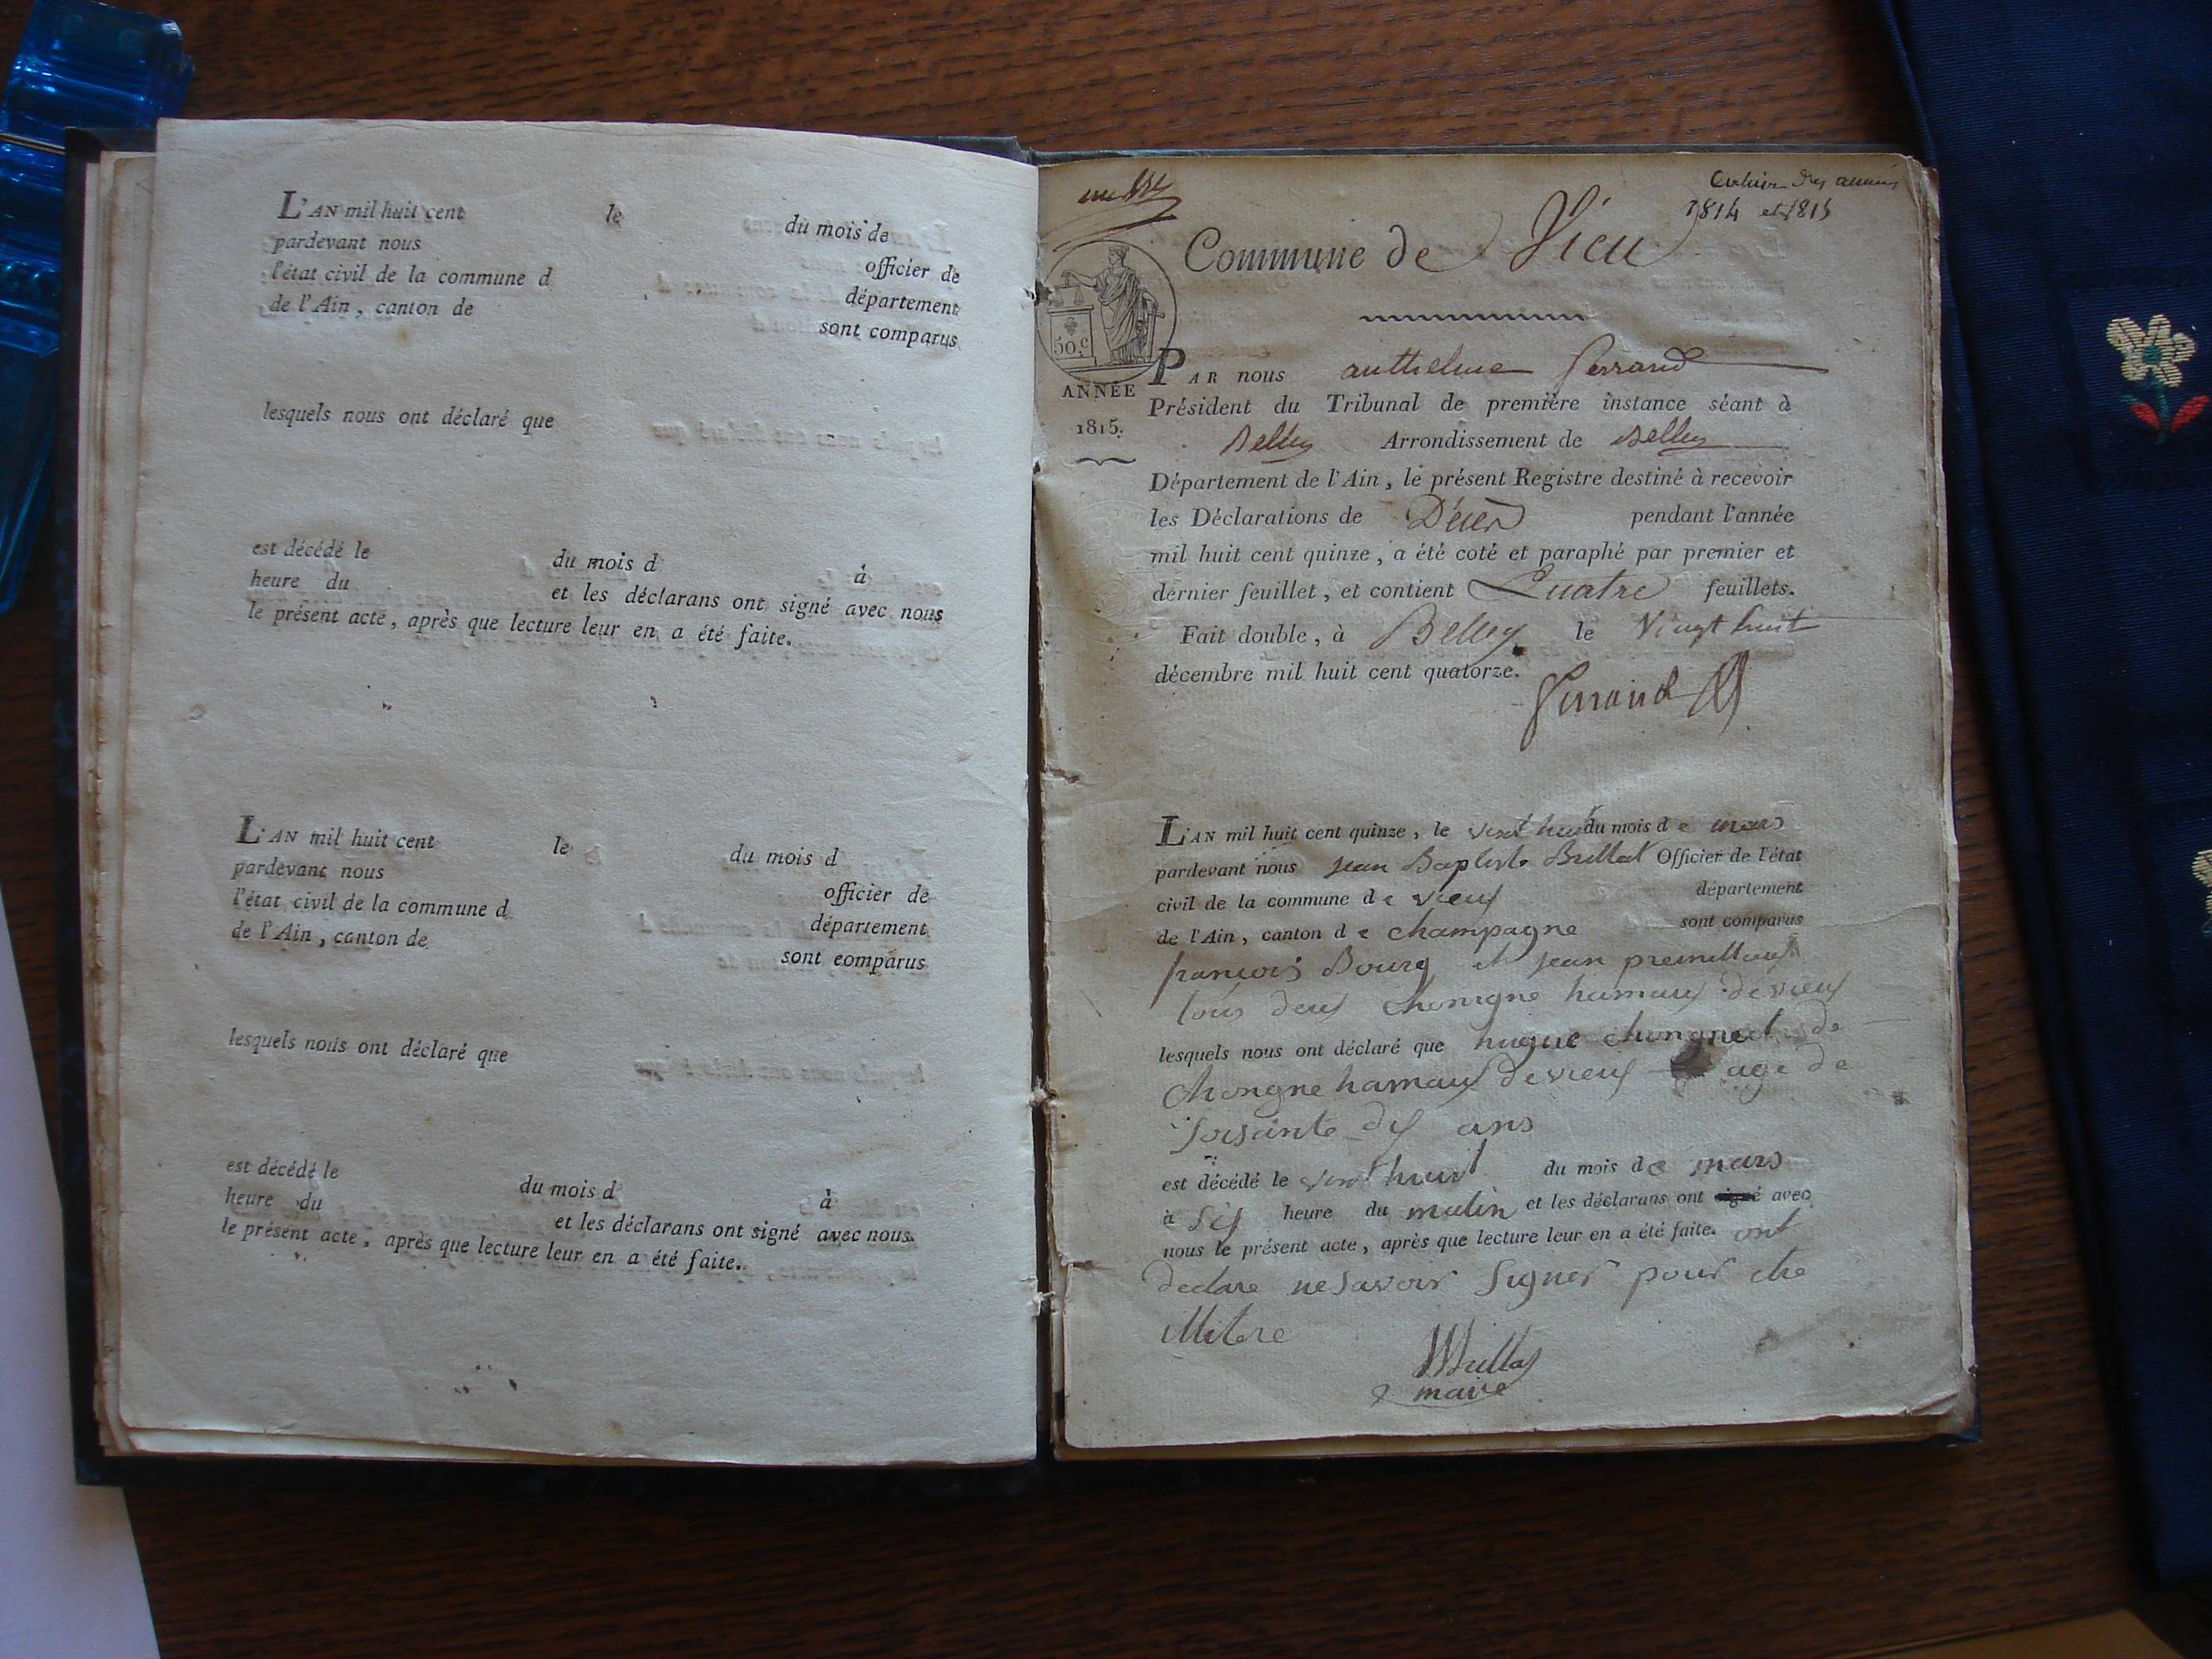 L'AN mil huit cent le du mois de
pardevant nous officier de
l'état civil de la commune d département
de l'Ain, canton de sont comparus
lesquels nous ont déclaré que
est décédé le du mois d à
heure du et les déclarans ont signé avec nous
le présent acte, après que lecture leur en a été faite.
L'AN mil huit cent le du mois d
pardevant nous officier de
l'état civil de la commune d département
de l'Ain, canton de sont comparus
lesquels nous ont déclaré que
est décédé le du mois d à
heure du et les déclarans ont signé avec nous
le présent acte, après que lecture leur en a été faite.
1814 et 1815
Commune de Vieu
50.c
ANNÉE
1815.
PAR nous anthelme ferrand
Président du Tribunal de première instance séant à
Belley Arrondissement de Belley
Département de l'Ain, le présent Registre destiné à recevoir
les Déclarations de Décès pendant l'année
mil huit cent quinze, a été coté et paraphé par premier et
dernier feuillet, et contient Quatre feuillets.
Fait double, à Belley le Vingt huit
décembre mil huit cent quatorze.
ferrand
L'AN mil huit cent quinze, le vint huit du mois de mars
pardevant nous jean Baptiste Brillat Officier de l'état
civil de la commune de vieux département
de l'Ain, canton de champagne sont comparus
francois Bourg et jean premillieux
tous deux chongne hamaux de vieux
lesquels nous ont déclaré que hugue chongned de
chongne hamaux de vieux age de
soisante dix ans
est décédé le vint huit du mois de mars
à six heure du matin et les déclarans ont signé avec
nous le présent acte, après que lecture leur en a été faite. ont
declare ne savoir signer pour etre
illitere
maire